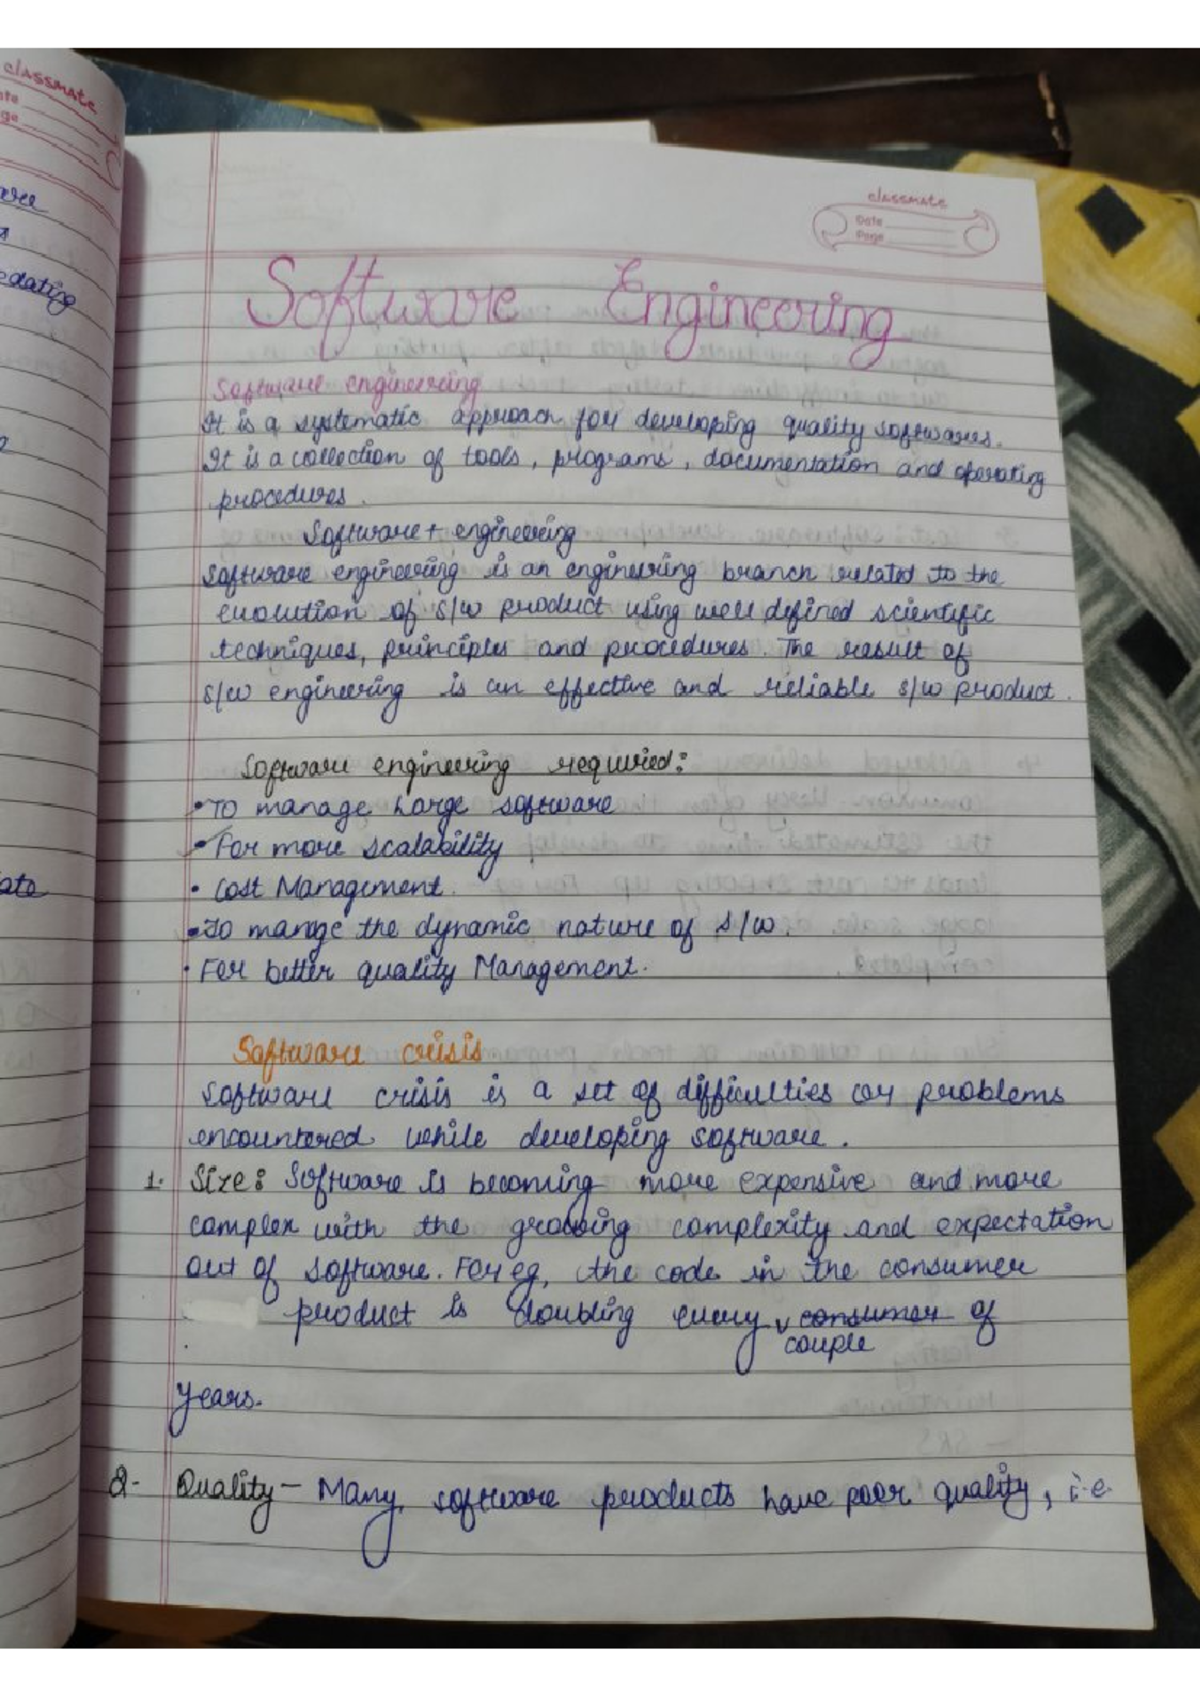 classmate
classmate
Date
Page
Software Engineering
Software engineering
It is a systematic approach for developing quality softwares.
It is a collection of tools, programs, documentation and operating
procedures.
Software + engineering
Software engineering is an engineering branch related to the
evolution of s/w product using well defined scientific
techniques, principles and procedures. The result of
s/w engineering is an effective and reliable s/w product.
Software engineering required:
• To manage Large software
• For more scalability
• Cost Management.
• To mange the dynamic nature of s/w.
• For better quality Management.
Software crisis
Software crisis is a set of difficulties or problems
encountered while developing software.
1. Size: Software is becoming more expensive and more
complex with the growing complexity and expectation
out of software. For eg, the code in the consumer
product is doubling every consumer of
couple
years.
2- Quality - Many software products have poor quality, i.e